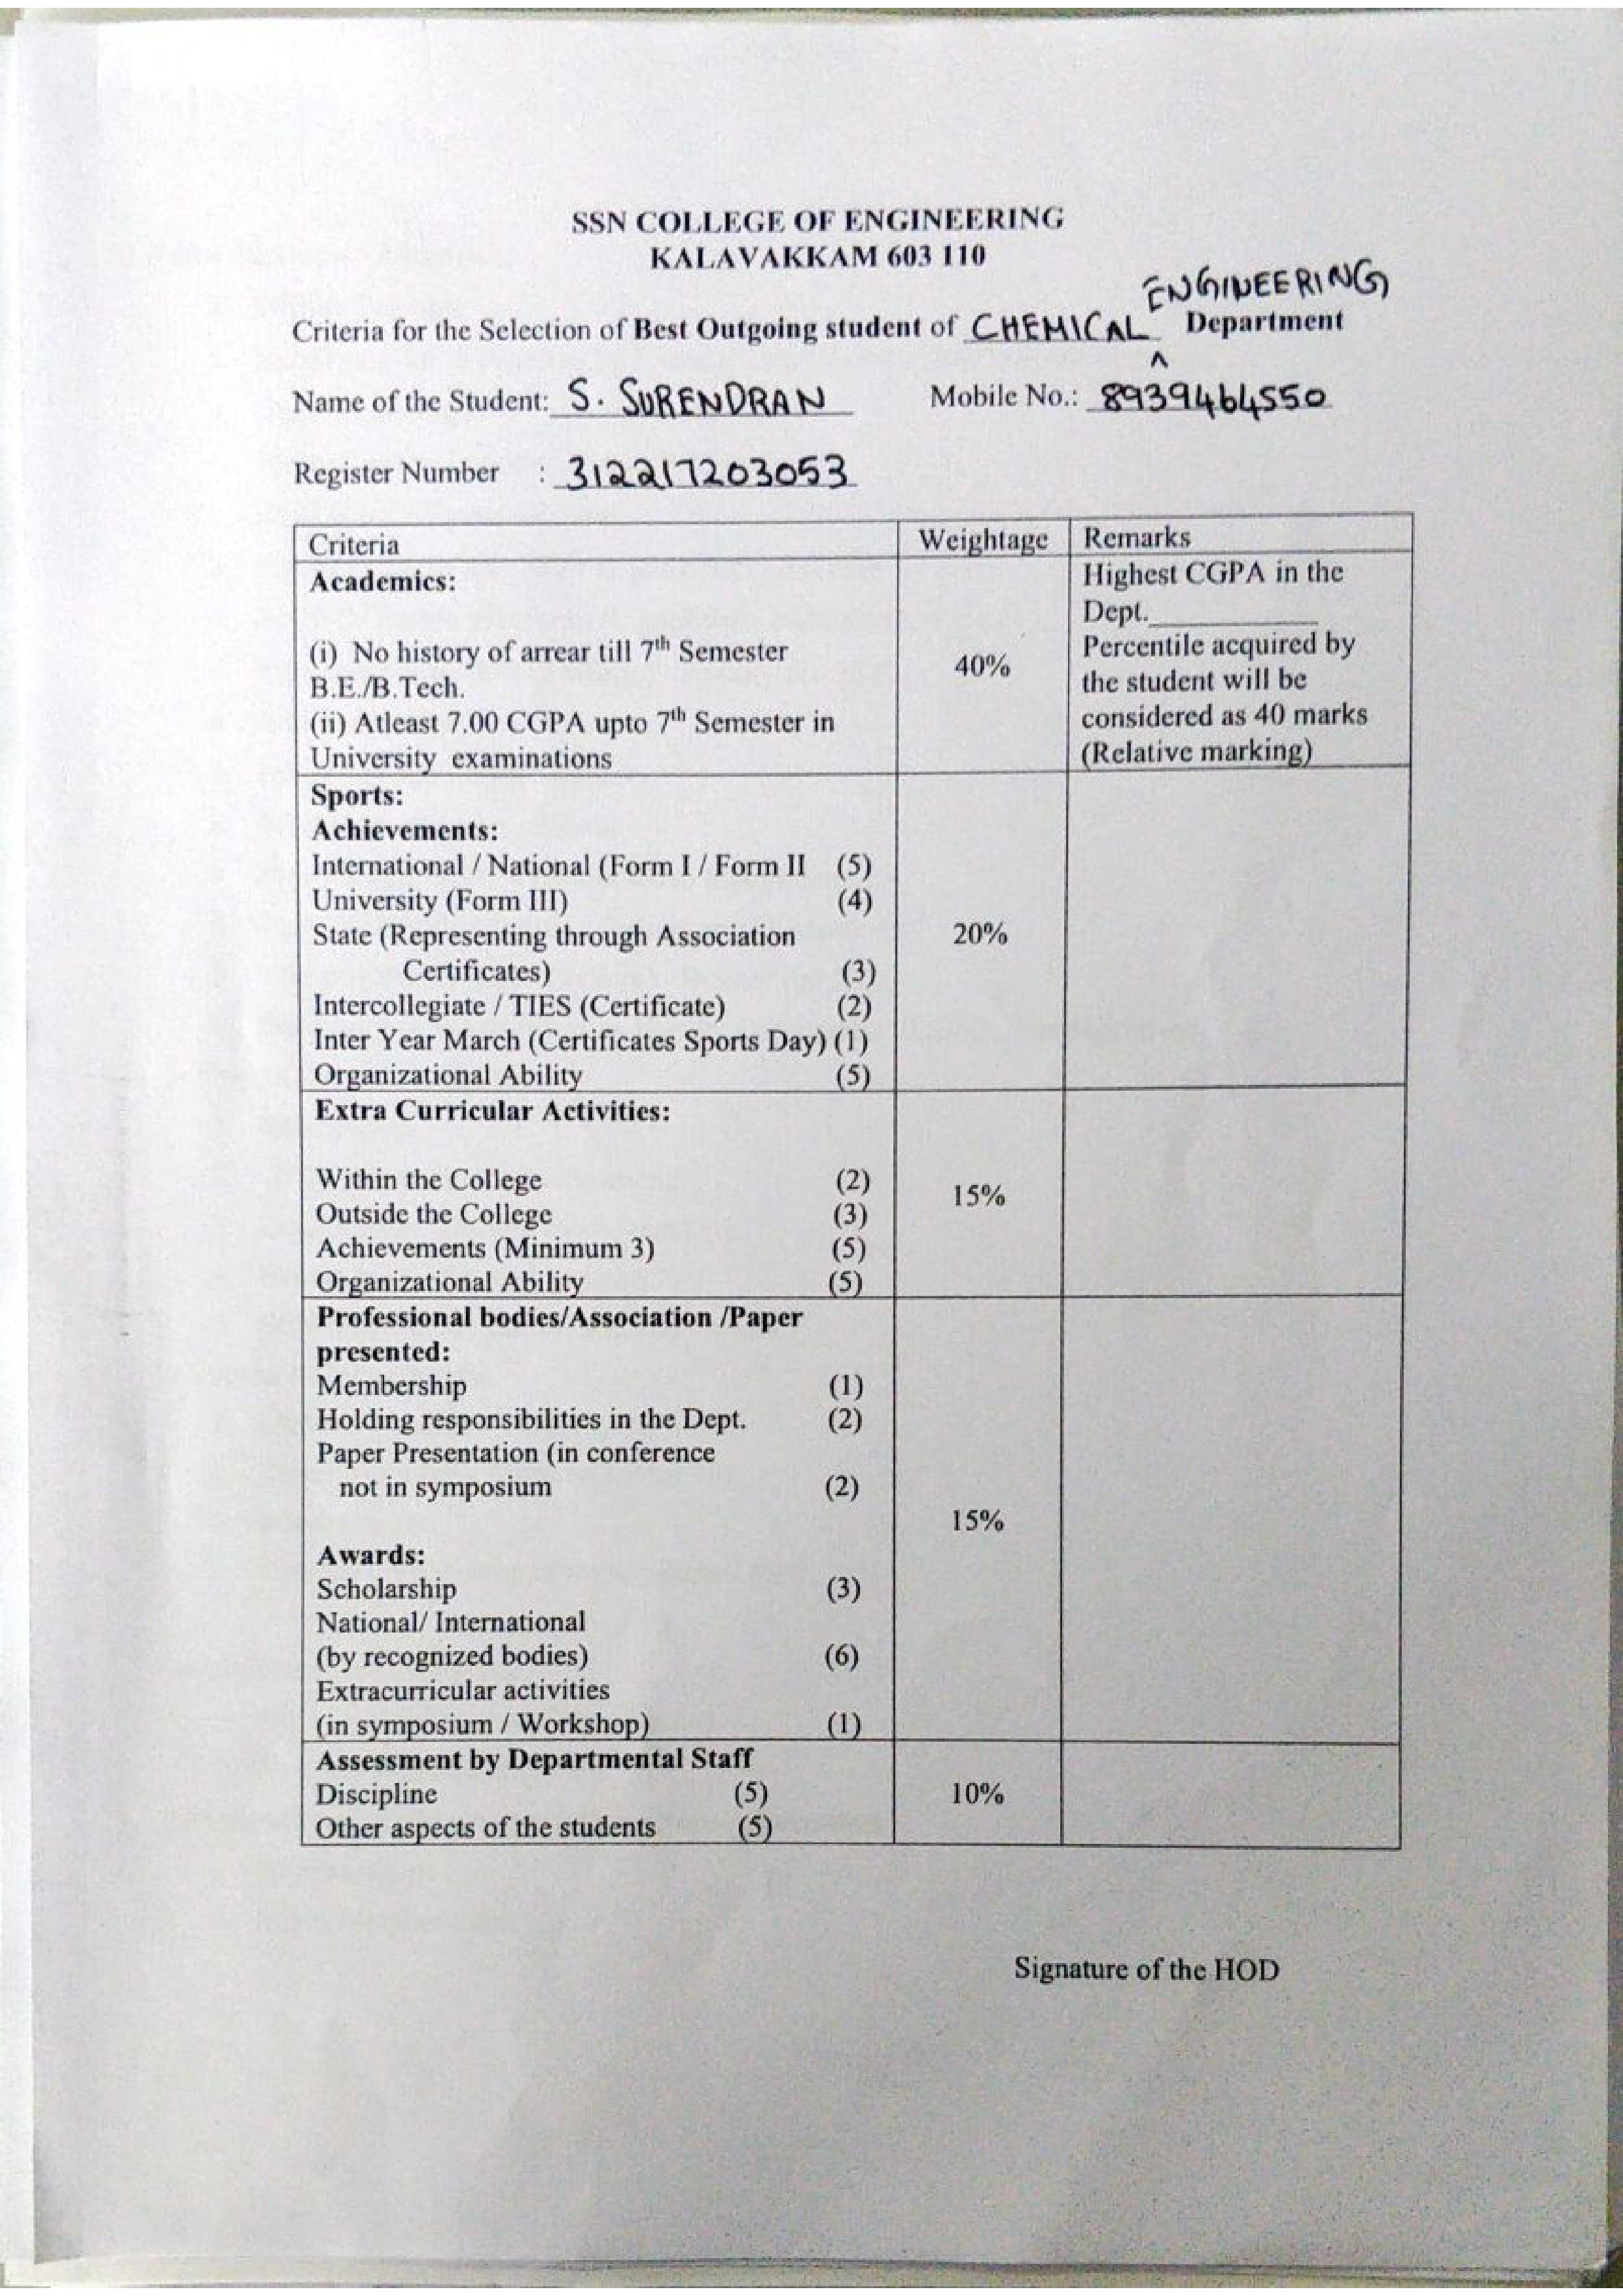 SSN COLLEGE OF ENGINEERING
KALAVAKKAM 603 110
ENGINEERING
Criteria for the Selection of Best Outgoing student of CHEMICAL ^ Department
Name of the Student: S. SURENDRAN Mobile No.: 8939464550
Register Number : 312217203053
Criteria Weightage Remarks
Academics: Highest CGPA in the
Dept.
(i) No history of arrear till 7th Semester 40% Percentile acquired by
B.E./B.Tech. the student will be
(ii) Atleast 7.00 CGPA upto 7th Semester in considered as 40 marks
University examinations (Relative marking)
Sports:
Achievements:
International / National (Form I / Form II (5)
University (Form III) (4)
State (Representing through Association 20%
Certificates) (3)
Intercollegiate / TIES (Certificate) (2)
Inter Year March (Certificates Sports Day) (1)
Organizational Ability (5)
Extra Curricular Activities:
Within the College (2) 15%
Outside the College (3)
Achievements (Minimum 3) (5)
Organizational Ability (5)
Professional bodies/Association /Paper
presented:
Membership (1)
Holding responsibilities in the Dept. (2)
Paper Presentation (in conference
not in symposium (2)
15%
Awards:
Scholarship (3)
National/ International
(by recognized bodies) (6)
Extracurricular activities
(in symposium / Workshop) (1)
Assessment by Departmental Staff
Discipline (5) 10%
Other aspects of the students (5)
Signature of the HOD